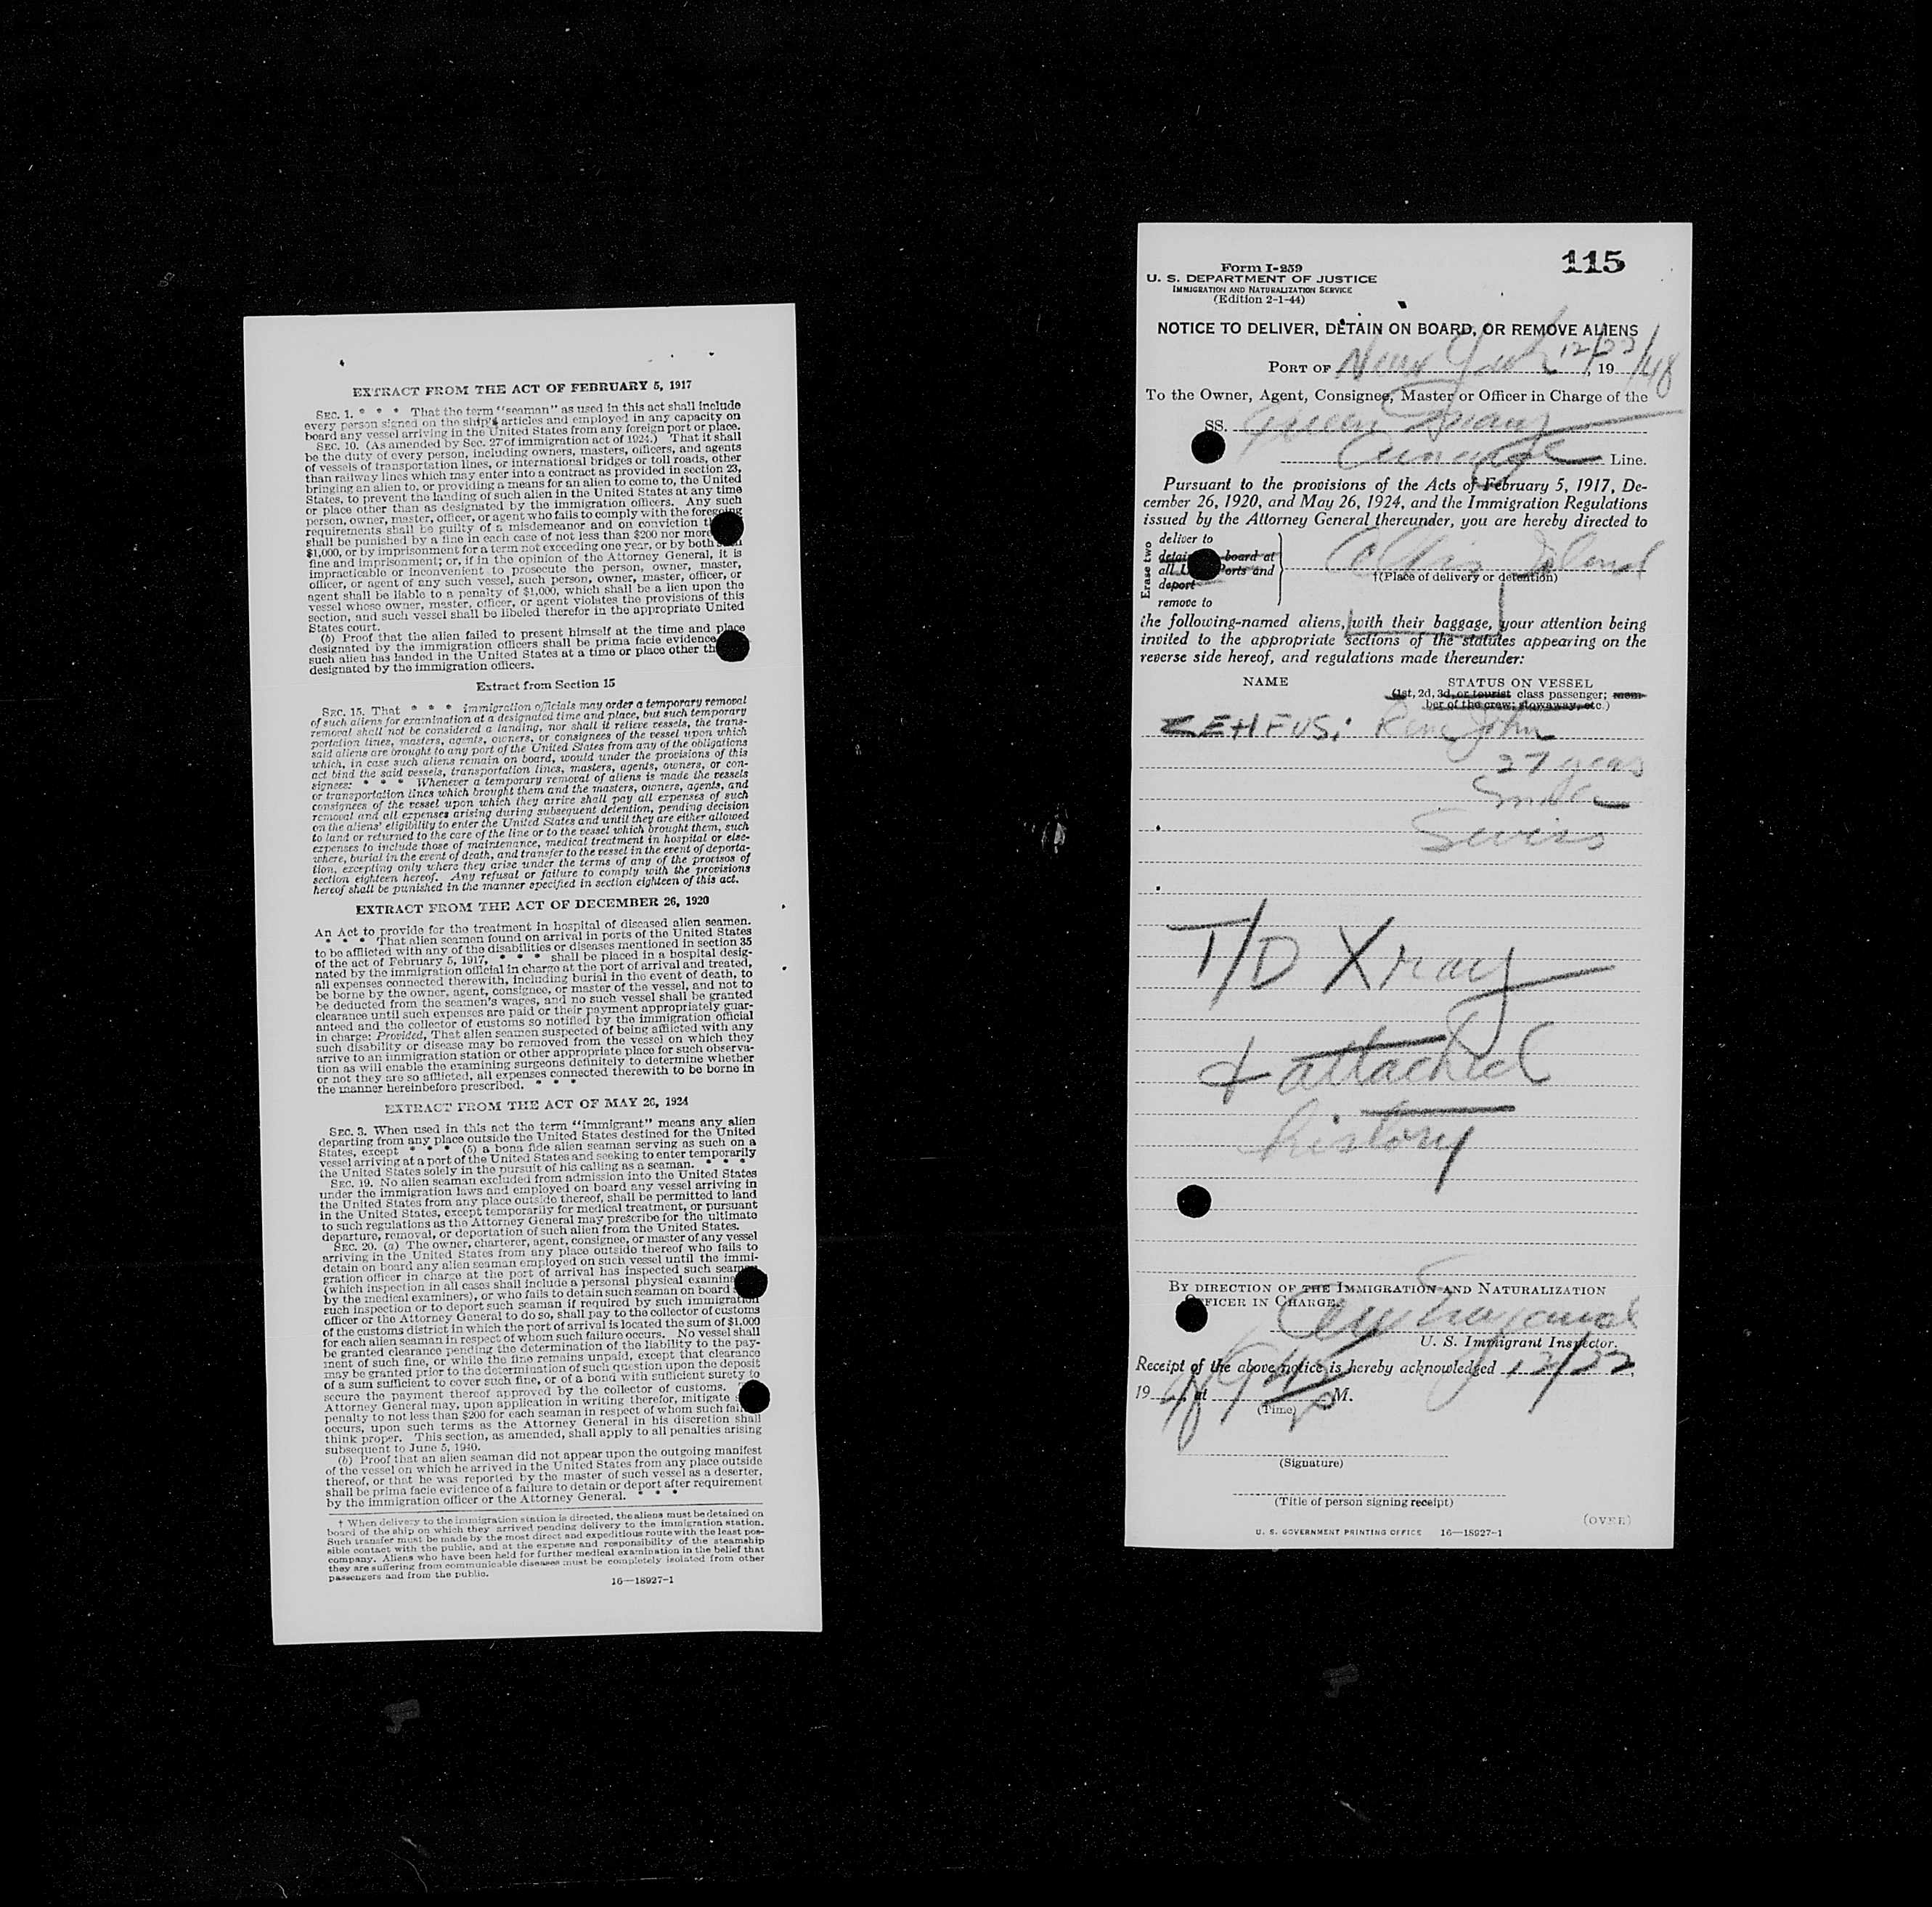 EXTRACT FROM THE ACT OF FEBRUARY 5, 1917
SEC. 1. * * * That the term "seaman" as used in this act shall include
every person signed on the ship's articles and employed in any capacity on
board any vessel arriving in the United States from any foreign port or place.
SEC. 10. (As amended by Sec. 27 of immigration act of 1924.) That it shall
be the duty of every person, including owners, masters, officers, and agents
of vessels of transportation lines, or international bridges or toll roads, other
than railway lines which may enter into a contract as provided in section 23,
bringing an alien to, or providing a means for an alien to come to, the United
States, to prevent the landing of such alien in the United States at any time
or place other than as designated by the immigration officers. Any such
person, owner, master, officer, or agent who fails to comply with the foregoing
requirements shall be guilty of a misdemeanor and on conviction
shall be punished by a fine in each case of not less than $200 nor more
$1,000, or by imprisonment for a term not exceeding one year, or by both
fine and imprisonment; or, if in the opinion of the Attorney General, it is
impracticable or inconvenient to prosecute the person, owner, master,
officer, or agent of any such vessel, such person, owner, master, officer, or
agent shall be liable to a penalty of $1,000, which shall be a lien upon the
vessel whose owner, master, officer, or agent violates the provisions of this
section, and such vessel shall be libeled therefor in the appropriate United
States court.
(b) Proof that the alien failed to present himself at the time and place
designated by the immigration officers shall be prima facie evidence
such alien has landed in the United States at a time or place other
designated by the immigration officers.
Extract from Section 15
SEC. 15. That * * * immigration officials may order a temporary removal
of such aliens for examination at a designated time and place, but such temporary
removal shall not be considered a landing, nor shall it relieve vessels, the trans-
portation lines, masters, agents, owners, or consignees of the vessel upon which
said aliens are brought to any port of the United States from any of the obligations
which, in case such aliens remain on board, would under the provisions of this
act bind the said vessels, transportation lines, masters, agents, owners, or con-
signees: * * * Whenever a temporary removal of aliens is made the vessels
or transportation lines which brought them and the masters, owners, agents, and
consignees of the vessel upon which they arrive shall pay all expenses of such
removal and all expenses arising during subsequent detention, pending decision
on the aliens' eligibility to enter the United States and until they are either allowed
to land or returned to the care of the line or to the vessel which brought them, such
expenses to include those of maintenance, medical treatment in hospital or else-
where, burial in the event of death, and transfer to the vessel in the event of deporta-
tion, excepting only where they arise under the terms of any of the provisos of
section eighteen hereof. Any refusal or failure to comply with the provisions
hereof shall be punished in the manner specified in section eighteen of this act.
EXTRACT FROM THE ACT OF DECEMBER 26, 1920
An Act to provide for the treatment in hospital of diseased alien seamen.
* * * That alien seamen found on arrival in ports of the United States
to be afflicted with any of the disabilities or diseases mentioned in section 35
of the act of February 5, 1917, * * * shall be placed in a hospital desig-
nated by the immigration official in charge at the port of arrival and treated,
all expenses connected therewith, including burial in the event of death, to
be borne by the owner, agent, consignee, or master of the vessel, and not to
be deducted from the seamen's wages, and no such vessel shall be granted
clearance until such expenses are paid or their payment appropriately guar-
anteed and the collector of customs so notified by the immigration official
in charge: Provided, That alien seamen suspected of being afflicted with any
such disability or disease may be removed from the vessel on which they
arrive to an immigration station or other appropriate place for such observa-
tion as will enable the examining surgeons definitely to determine whether
or not they are so afflicted, all expenses connected therewith to be borne in
the manner hereinbefore prescribed. * * *
EXTRACT FROM THE ACT OF MAY 26, 1924
SEC. 3. When used in this act the term "immigrant" means any alien
departing from any place outside the United States destined for the United
States, except * * * (5) a bona fide alien seaman serving as such on a
vessel arriving at a port of the United States and seeking to enter temporarily
the United States solely in the pursuit of his calling as a seaman. * * *
SEC. 19. No alien seaman excluded from admission into the United States
under the immigration laws and employed on board any vessel arriving in
the United States from any place outside thereof, shall be permitted to land
in the United States, except temporarily for medical treatment, or pursuant
to such regulations as the Attorney General may prescribe for the ultimate
departure, removal, or deportation of such alien from the United States.
SEC. 20. (a) The owner, charterer, agent, consignee, or master of any vessel
arriving in the United States from any place outside thereof who fails to
detain on board any alien seaman employed on such vessel until the immi-
gration officer in charge at the port of arrival has inspected such seaman
(which inspection in all cases shall include a personal physical
by the medical examiners), or who fails to detain such seaman on board
such inspection or to deport such seaman if required by such immigration
officer or the Attorney General to do so, shall pay to the collector of customs
of the customs district in which the port of arrival is located the sum of $1,000
for each alien seaman in respect of whom such failure occurs. No vessel shall
be granted clearance pending the determination of the liability to the pay-
ment of such fine, or while the fine remains unpaid, except that clearance
may be granted prior to the determination of such question upon the deposit
of a sum sufficient to cover such fine, or of a bond with sufficient surety to
secure the payment thereof approved by the collector of customs.
Attorney General may, upon application in writing therefor, mitigate
penalty to not less than $200 for each seaman in respect of whom such
occurs, upon such terms as the Attorney General in his discretion shall
think proper. This section, as amended, shall apply to all penalties arising
subsequent to June 5, 1940.
(b) Proof that an alien seaman did not appear upon the outgoing manifest
of the vessel on which he arrived in the United States from any place outside
thereof, or that he was reported by the master of such vessel as a deserter,
shall be prima facie evidence of a failure to detain or deport after requirement
by the immigration officer or the Attorney General. * * *
† When delivery to the immigration station is directed, the aliens must be detained on
board of the ship on which they arrived pending delivery to the immigration station.
Such transfer must be made by the most direct and expeditious route with the least pos-
sible contact with the public, and at the expense and responsibility of the steamship
company. Aliens who have been held for further medical examination in the belief that
they are suffering from communicable diseases must be completely isolated from other
passengers and from the public.
16—18927-1
115
Form I-259
U. S. DEPARTMENT OF JUSTICE
IMMIGRATION AND NATURALIZATION SERVICE
(Edition 2-1-44)
NOTICE TO DELIVER, DETAIN ON BOARD, OR REMOVE ALIENS
PORT OF New York 12/22/48, 19
To the Owner, Agent, Consignee, Master or Officer in Charge of the
SS. Queen Mary
Cunard Line.
Pursuant to the provisions of the Acts of February 5, 1917, De-
cember 26, 1920, and May 26, 1924, and the Immigration Regulations
issued by the Attorney General thereunder, you are hereby directed to
Erase two
deliver to
board at
all Ports and
deport
remove to
Ellis Island
†(Place of delivery or detention)
the following-named aliens, with their baggage, your attention being
invited to the appropriate sections of the statutes appearing on the
reverse side hereof, and regulations made thereunder:
NAME STATUS ON VESSEL
(1st, 2d, 3d, or tourist class passenger; mem-
ber of the crew; stowaway, etc.)
ZEHFUS: Rene John
27 years
Swiss
T/D Xray
+ attached
history
BY DIRECTION OF THE IMMIGRATION AND NATURALIZATION
OFFICER IN CHARGE
U. S. Immigrant Inspector.
Receipt of the above notice is hereby acknowledged 12/22,
19 48 at 945 M.
(Time)
(Signature)
(Title of person signing receipt)
(OVER)
U. S. GOVERNMENT PRINTING OFFICE 16—18927-1